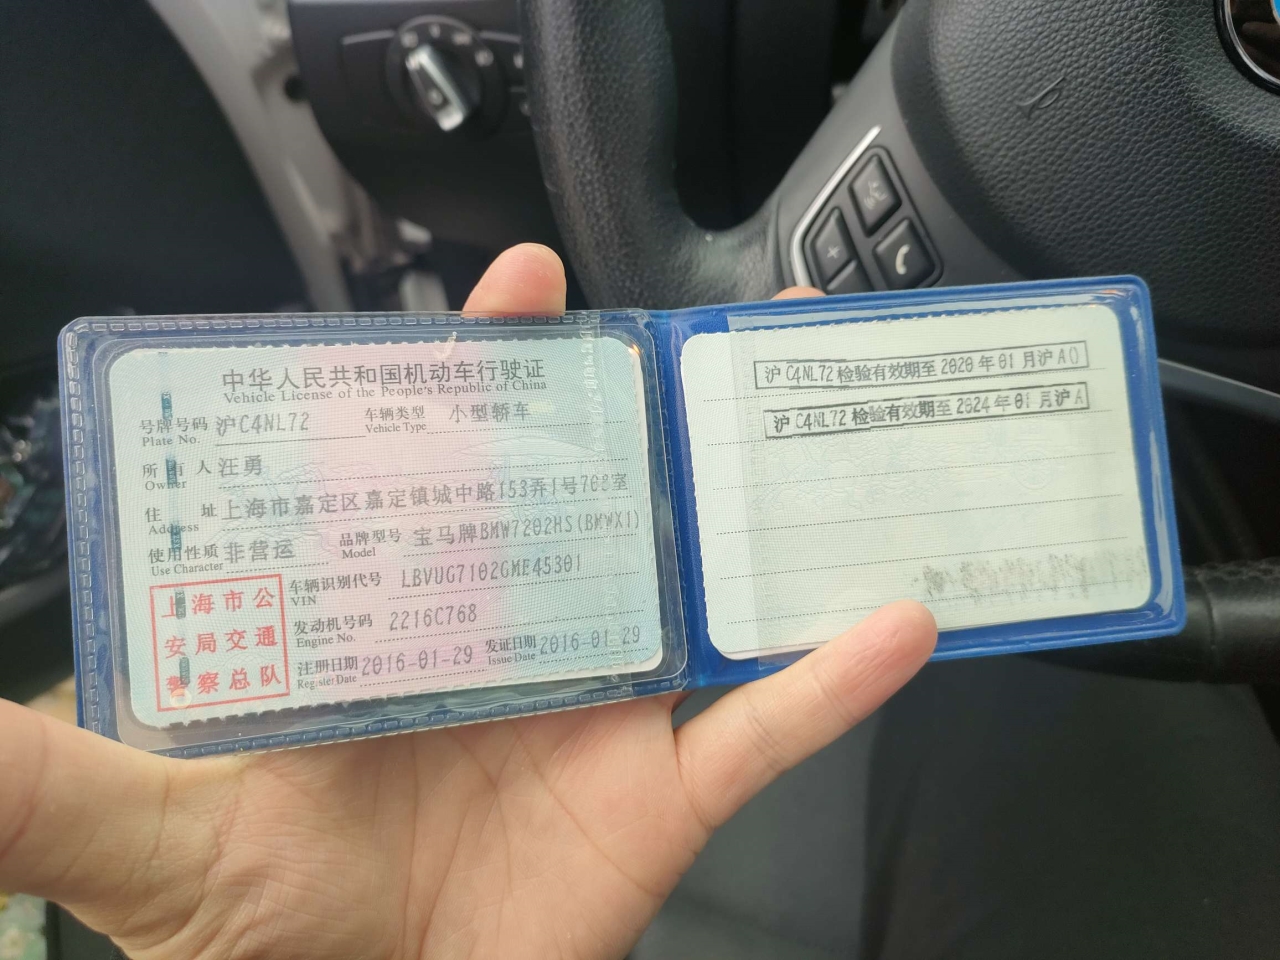 中华人民共和国机动车行驶证
Vehicle License of the People's Republic of China
号牌号码 沪C4NL72 车辆类型 小型轿车
Plate No. Vehicle Type
所有人 汪勇
Owner
住址 上海市嘉定区嘉定镇城中路153弄1号708室
Address
使用性质 非营运 品牌型号 宝马牌BMW7202HS(BMWX1)
Use Character Model
车辆识别代号 LBVUG7102GME45301
VIN
发动机号码 2216C768
Engine No.
注册日期 2016-01-29 发证日期 2016-01-29
Register Date Issue Date
上海市公
安局交通
警察总队
沪C4NL72 检验有效期至 2020年01月沪A()
沪C4NL72 检验有效期至 2024年01月沪A